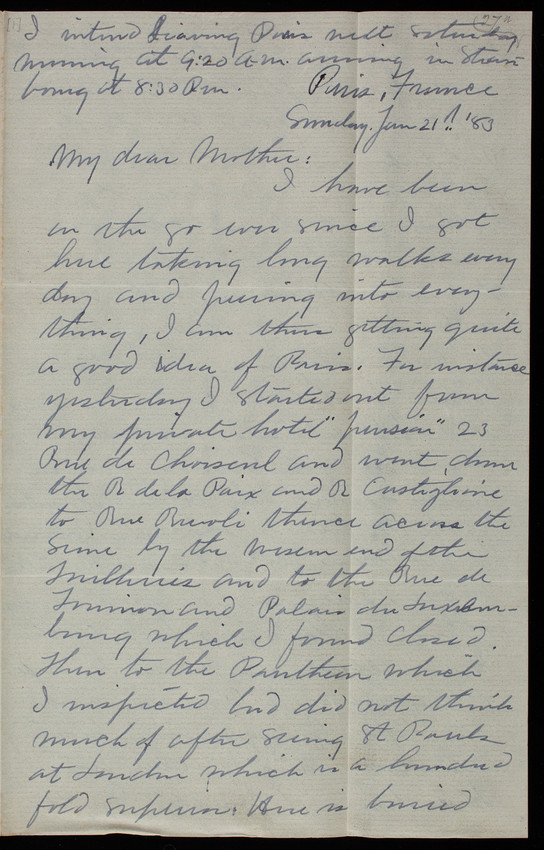 [1] (27)
I intend leaving Paris next Saturday
morning at 9:20 A.M. arriving in Stras-
bourg at 8:30 P.m.
Paris, France
Sunday. Jan 21st. '83
My dear Mother:
I have been
on the go ever since I got
here taking long walks every
day and peering into every-
thing, I am thus getting quite
a good idea of Paris. For instance
yesterday I started out from
my private hotel "pension" 23
Rue de Choiseul and went down
the R de la Paix and R Castiglione
to Rue Rivoli thence across the
Seine by the museum end of the
Tuilleries and to the Rue de
Tournon and Palais du Luxem-
bourg which I found closed.
Then to the Pantheon which
I inspected but did not think
much of after seeing St Pauls
at London which is a hundred
fold superior. Here is buried